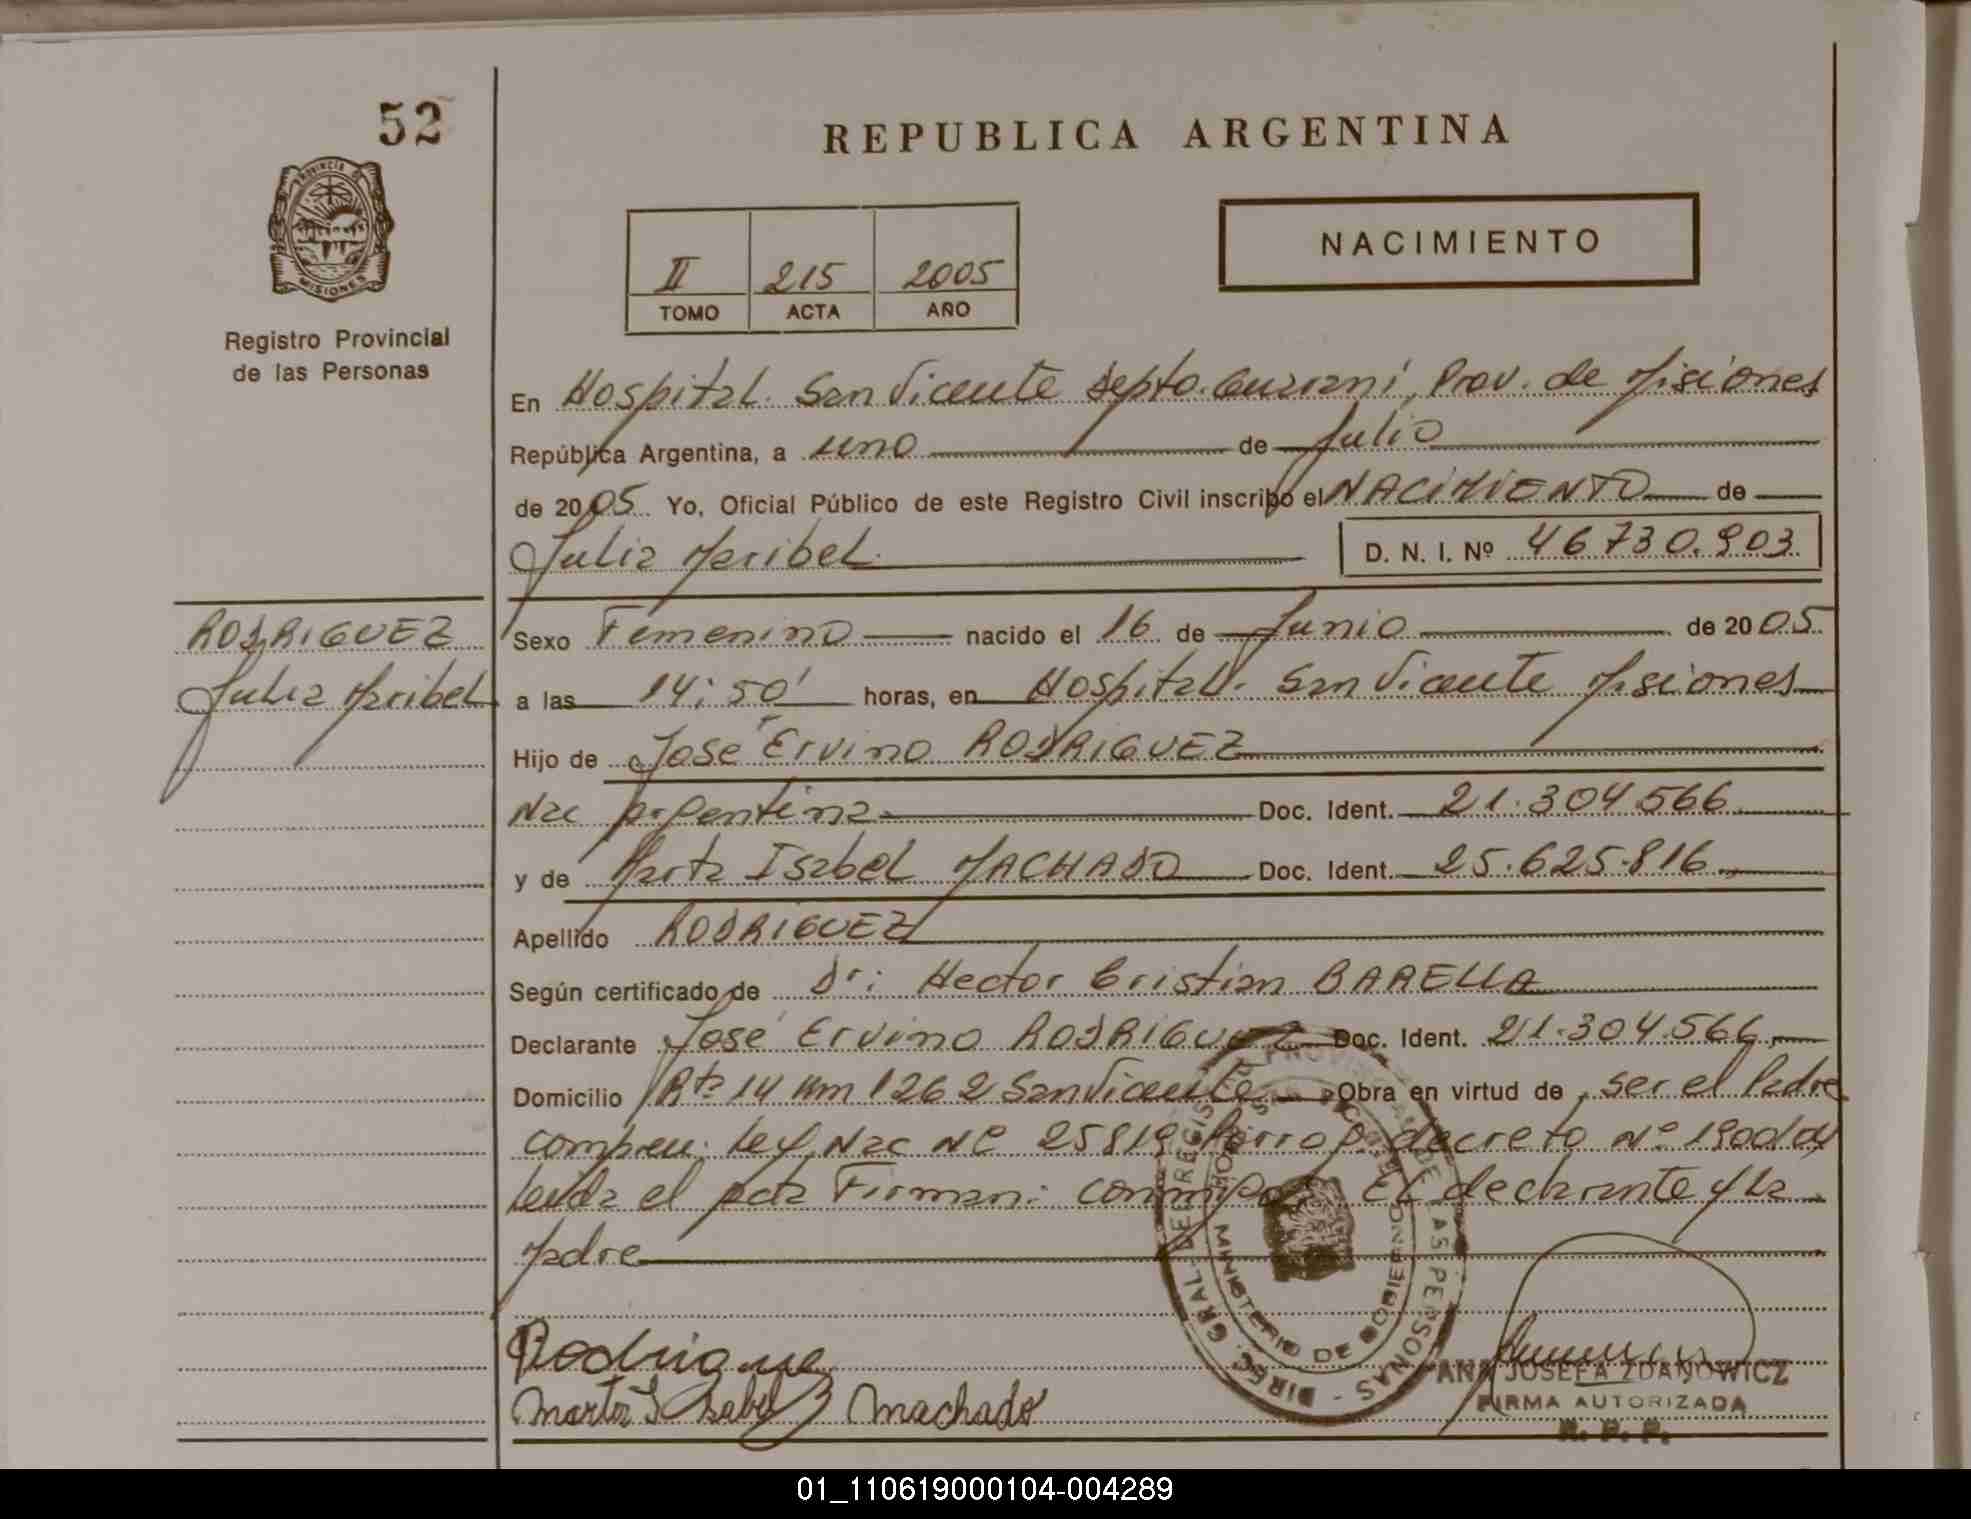 52
REPUBLICA ARGENTINA
PROVINCIA DE
MISIONES
Registro Provincial
de las Personas
II 215 2005
TOMO ACTA AÑO
NACIMIENTO
En Hospital. San Vicente Depto. Guaraní, Prov. de Misiones
República Argentina, a uno de Julio
de 2005 Yo, Oficial Público de este Registro Civil inscribo el NACIMIENTO de
Julia Maribel D. N. I. Nº 46730.903
RODRIGUEZ
Julia Maribel
Sexo Femenino nacido el 16 de Junio de 2005
a las 14:50' horas, en Hospital. San Vicente Misiones
Hijo de José Ervino RODRIGUEZ
Nac Argentina Doc. Ident. 21.304.566
y de Marta Isabel MACHADO Doc. Ident. 25.625.816
Apellido RODRIGUEZ
Según certificado de Dr: Hector Cristian BARELLA
Declarante José Ervino RODRIGUEZ Doc. Ident. 21.304.566
Domicilio Rta 14 Km 1262 San Vicente Obra en virtud de ser el Padre
compren. Ley Nac Nº 25819 decreto Nº
Leida el acta Firman: conmigo El declarante y la
Madre
DIREC. GRAL. DE REGISTRO PROVINCIAL DE LAS PERSONAS
MINISTERIO DE GOBIERNO
Rodrigue
Marta Isabel Machado
ANA JOSEFA ZDANOWICZ
FIRMA AUTORIZADA
R. P. P.
01_110619000104-004289